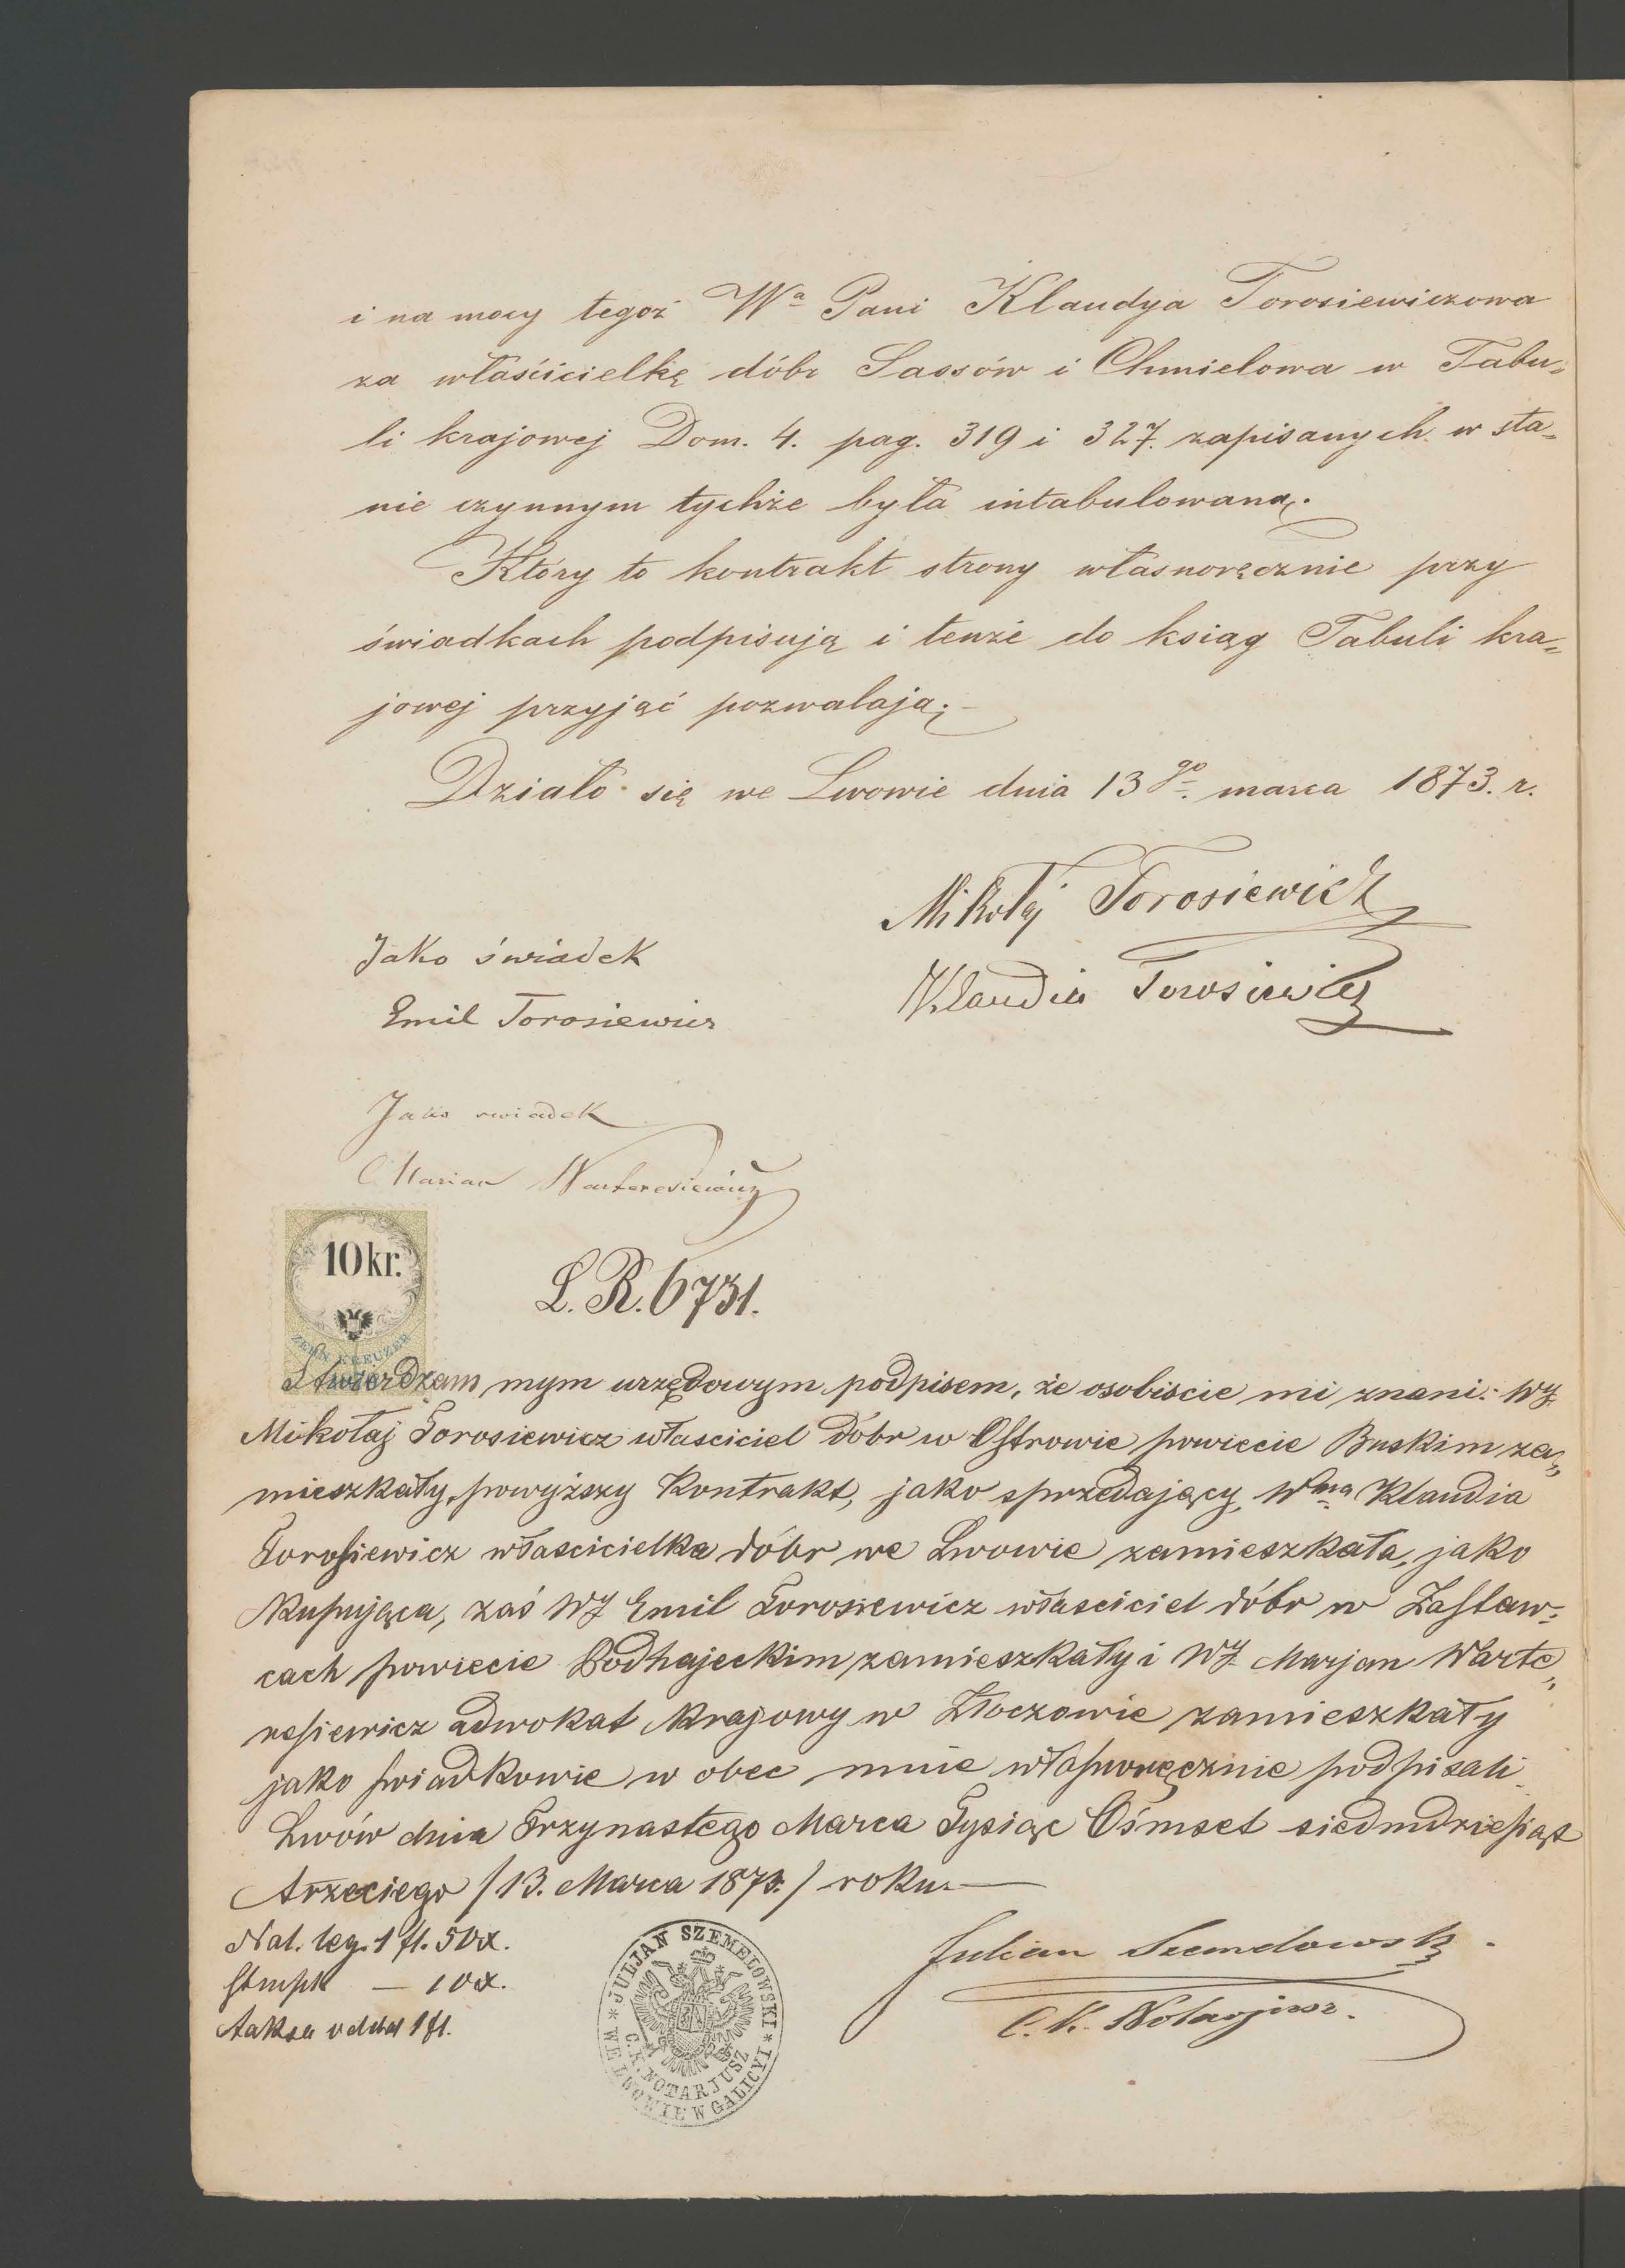 i na mocy tegoż Wa Pani Klaudya Torosiewiczowa
za właścicielkę dóbr Sassów i Chmielowa w Tabu=
li krajowej Dom. 4. pag. 319 i 327. zapisanych w sta=
nie czynnym tychże była intabulowaną.
Który to kontrakt strony własnoręcznie przy
świadkach podpisują i tenże do ksiąg Tabuli kra=
jowej przyjąć pozwalają.
Działo się we Lwowie dnia 13go marca 1873. r.
Mikołaj Torosiewicz
Klaudia Torosiewicz
Jako świadek
Emil Torosiewicz
Jako swiadek
Marian Warteresiewicz
10 kr.
ZEHN KREUZER
L.R. 6731.
Stwierdzam mym urzędowym podpisem, że osobiscie mi znani: WJ.
Mikołaj Torosiewicz własciciel dóbr w Ostrowie powiecie Buskim za„
mieszkały, powyższy Kontrakt, jako sprzedający, Wna Klaudia
Torosiewicz własścicielka dóbr we Lwowie zamieszkała, jako
Kupująca, zaś WJ Emil Torosiewicz właściciel dóbr w Zastaw=
cach powiecie Podhajeckim zamieszkały i WJ. Marjan Warte„
resiewicz adwokat Krajowy w Złoczowie zamieszkały
jako swiadkowie w obec mnie własnoręcznie podpisali
Lwów dnia Trzynastego Marca Tysiąc Ośmset siedmdziesiąt
trzeciego /13. Marca 1873./ roku.
Nal. leg. 1 fl. 50 x.
Stmpl — 10 x.
taksa 1 fl.
* JULJAN SZEMELOWSKI * WE LWOWIE W GALICYI
C.K. NOTARJUSZ
Julian Szemelowski.
C. K. Notarjusz.